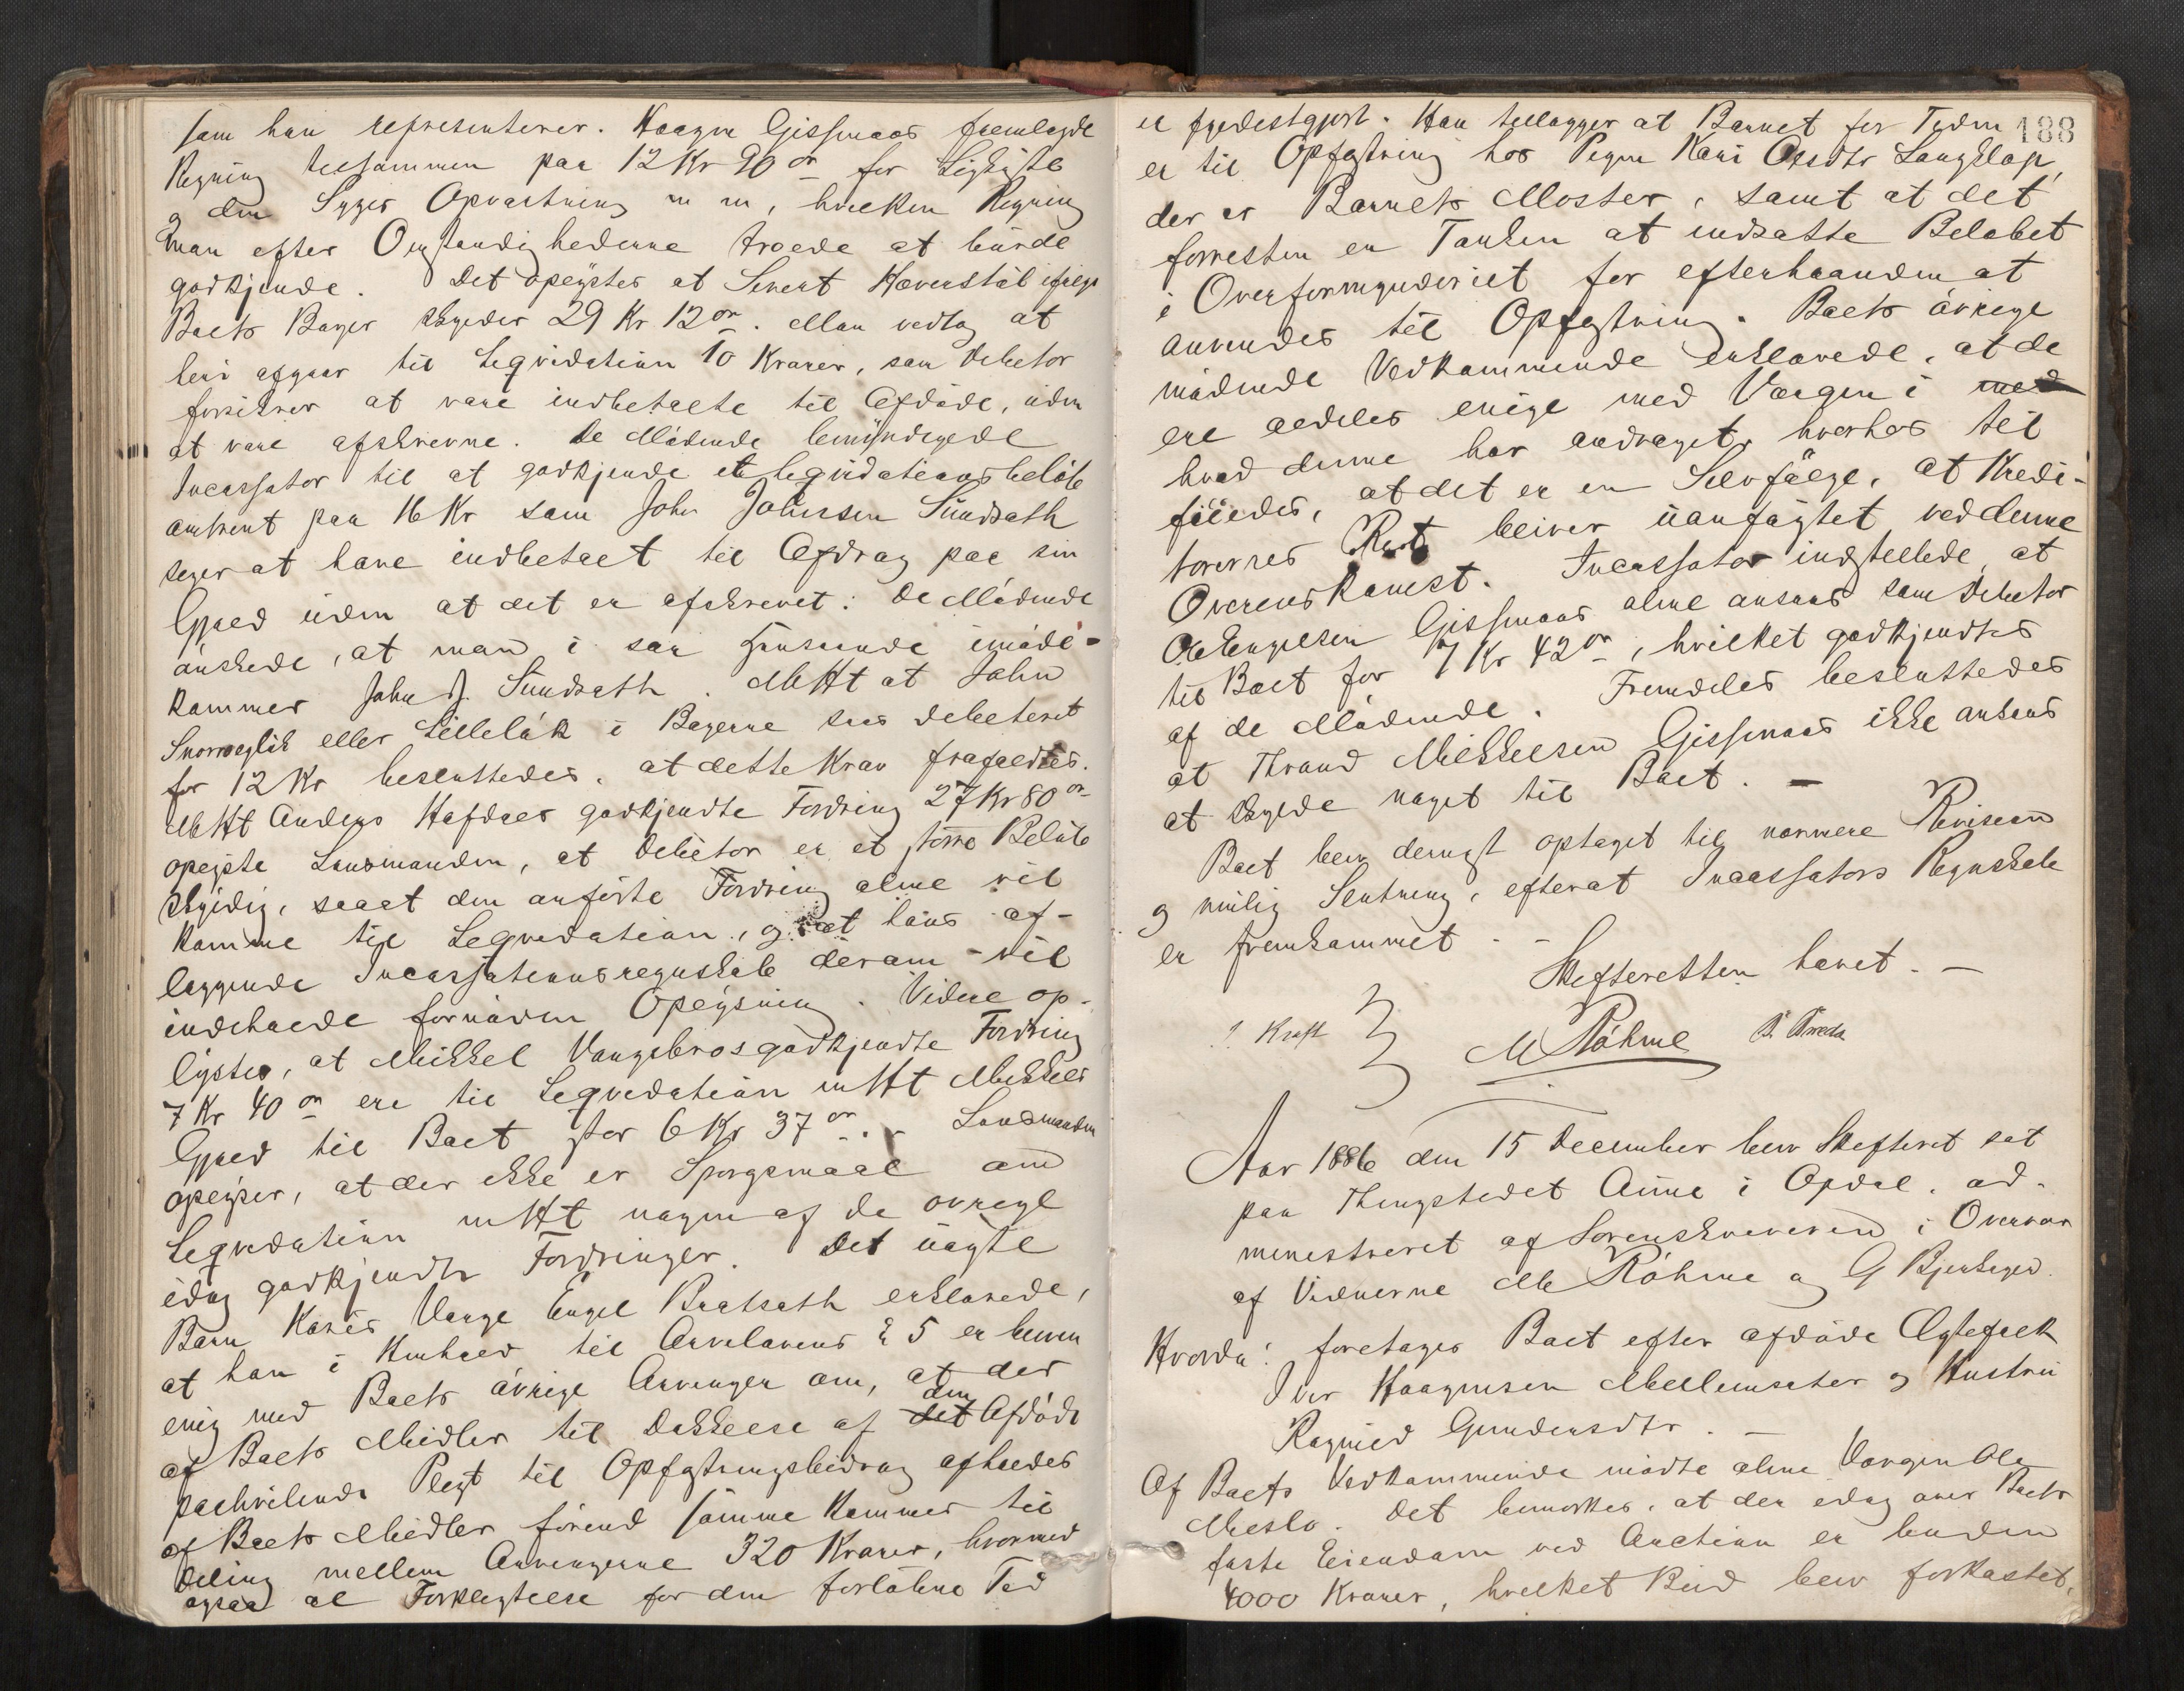 som han repræsenterer. Haagen Gissmaas fremlagde
Regning tilsammen paa 12 Kr 90 ør for Ligkiste
og den Syges Opvartning m m, hvilken Regning
man efter Omstændighederne troede at burde
godkjende. Det oplystes at Sivert Haverstøl ifølge
Boets Bøger skylder 29 Kr 12 ør. Man vedtog at
heri afgaar til Liqvidation 10 Kroner, som Debitor
forsikrer at være indbetalte til Afdøde, uden
at være afskrevne. De Mødende bemyndigede
Incassator til at godkjende et Liqvidationsbeløb
omtrent paa 16 Kr som John Johnsen Sundseth
siger at have indbetalt til Afdrag paa sin
Gjæld uden at det er afskrevet: De Mødende
ønskede, at man i saa Henseende imøde-
kommer John J. Sundseth. Mht at John
Snoveglik eller Lilleløk i Bøgerne staar debiteret
for 12 Kr besluttedes, at dette Krav frafaldtes.
Mht Anders Hafdals godkjendte Fordring 27 Kr 80 ør
oplyste Lensmanden, at Debitor er et større Beløb
skyldig, saaat den anførte Fordring alene vil
komme til Liqvidation, og at hans af-
læggende Incassationsregnskab derom vil
indeholde fornøden Oplysning. Videre op-
lystes, at Mikkel Vangsbros godkjendte Fordring
7 Kr 40 ør ere til Liqvidation mht Mikkels
Gjæld til Boet stor 6 Kr 37 ør. - Lensmanden
oplyser, at der ikke er Spørgsmaal om
Liqvidation mht nogen af de øvrige
idag godkjendte Fordringer. Det uægte
Barn Karis Værge Engel Bratseth erklærede,
at han i Henhold til Arvelovens § 5 er bleven
enig med Boets øvrige Arvinger om, at der
af Boets Midler til Dækkelse af det den Afdøde
paahvilende Pligt til Opfostringsbidrag afholdes
af Boets Midler førend samme kommer til
Deling mellem Arvingerne 320 Kroner, hvormed
ogsaa al Forpligtelse for den forløbne Tid
188
er fyldestgjort. Han tillægger at Barnet for Tiden
er til Opfostring hos Pigen Kari Olsdtr Langklop,
der er Barnets Moster, samt at det
forresten er Tanken at indsætte Beløbet
i Overformynderiet for efterhaanden at
anvendes til Opfostring. Boets øvrige
mødende Vedkommende erklærede, at de
ere aldeles enige med Værgen i med
hvad denne har andraget, hvorhos til
føiedes, at det er en Selvfølge, at Kredi-
torernes Ret bliver uanfægtet ved denne
Overenskomst. Incassator indstillede, at
Ole Engelsen Gissmaas alene ansaas som Debitor
til Boet for 7 Kr 42 ør, hvilket godkjendtes
af de Mødende. Fremdeles besluttedes
at Thrond Mikkelsen Gissmaas ikke ansaas
at skylde noget til Boet. -
Boet blev dernæst optaget til nærmere Revision
og mulig Slutning, efterat Incassators Regnskab
er fremkommet - -
Skifteretten hævet. -
Kraft M Røhme
Aar 1886 den 15 December blev Skifteret sat
paa Thingstedet Aune i Opdal, ad-
ministreret af Sorenskriveren i Overvær
af Vidnerne M Røhme og G Bjerkager.
Hvorda: foretages Boet efter afdøde Ægtefolk
Iver Haagensen Mellemsæter og Hustru
Ragnild Gundersdtr. -
Af Boets Vedkommende mødte alene Værgen Ole
Meslo. Det bemærkes, at der idag over Boets
faste Eiendom ved Auction er buden
4000 Kroner, hvilket Bud blev forkastet,